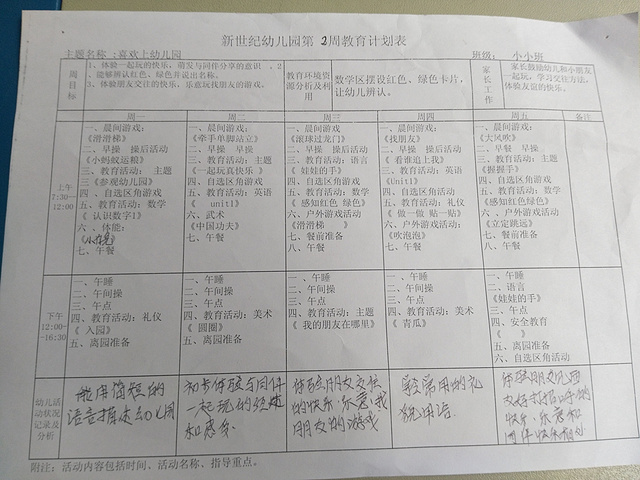 新世纪幼儿园第 2周教育计划表
主题名称：喜欢上幼儿园
班级： 小小班
周目标
1、体验一起玩的快乐，萌发与同伴分享的意识 。2
能够辨认红色、绿色并说出名称。
3、体验朋友交往的快乐，乐意玩找朋友的游戏。
教育环境资源分析及利用
数学区摆设红色、绿色卡片，
让幼儿辨认。
家长工作
家长鼓励幼儿和小朋友
一起玩，学习交往方法，
体验友谊的快乐。
周一 周二 周三 周四 周五 备注
上午
7:30—
12:00
一、晨间游戏：
《滑滑梯》
二、早操 操后活动
《小蚂蚁运粮》
三、教育活动： 主题
《参观幼儿园》
四 、自选区角游戏
五、教育活动：数学
《 认识数字1》
六 、体能：
七、午餐
一、晨间游戏：
《牵手单脚站立》
二、早操 早操
三、教育活动： 主题
《一起玩真快乐 》
四、自选区角游戏
五、教育活动：英语
《 unit1》
六、武术
《中国功夫》
七、午餐
一、晨间游戏：
《滚球过龙门》
二、早操 操后活动
三、教育活动：语言
《 娃娃的手》
四、自选区角游戏
五、教育活动：数学
《感知红色 绿色》
六、户外游戏活动
《滑滑梯 》
七、餐前准备
八、午餐
一、晨间游戏：
《找朋友》
二、早操 操后活动
《 看谁追上我》
三、教育活动：英语
《Unit1》
四、自选区角活动
五、教育活动：礼仪
《 做一做 贴一贴》
六、户外游戏活动：
《吹泡泡》
七、午餐
一、晨间游戏：
《大风吹》
二、早餐 早操
三、教育活动： 主题
《握握手》
四、自选区角游戏
五、教育活动：数学
《感知红色绿色》
六 、户外游戏活动
《立定跳远》
七、餐前准备
八、午餐
下午
12:00—
-16:30
一、午睡
二、午间操
三、午点
四、教育活动：礼仪
《 入园》
五、离园准备
一、午睡
二、午间操
三、午点
四、教育活动：美术
《 圆圈》
五、离园准备
一、午睡
二、午间操
三、午点
四、教育活动：主题
《 我的朋友在哪里》
五、离园准备
一、午睡
二、午间操
三、午点
四、教育活动：美术
《 青瓜》
五、离园准备
一、午睡
二、语言
《娃娃的手》
三、午点
四、安全教育
《 》
五、离园准备
六、自选区角活动
幼儿活动状况记录及分析
能用简短的
语言描述幼儿园
初步体验与同伴
一起玩的
体验朋友交往
的快乐，乐意找
朋友的游戏
常用的礼
貌用语
体验朋友见面
快乐，乐意和
附注：活动内容包括时间、活动名称、指导重点。